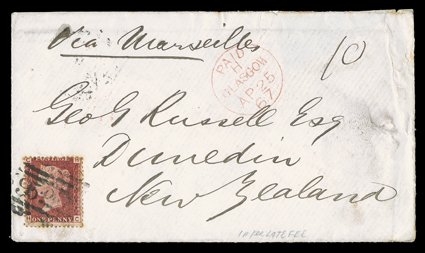 Via Marseilles
10
PAID
GLASGOW
AP 25
67
Geo G Russell Esq
Dunedin
New Zealand
ONE PENNY
LATE FEE